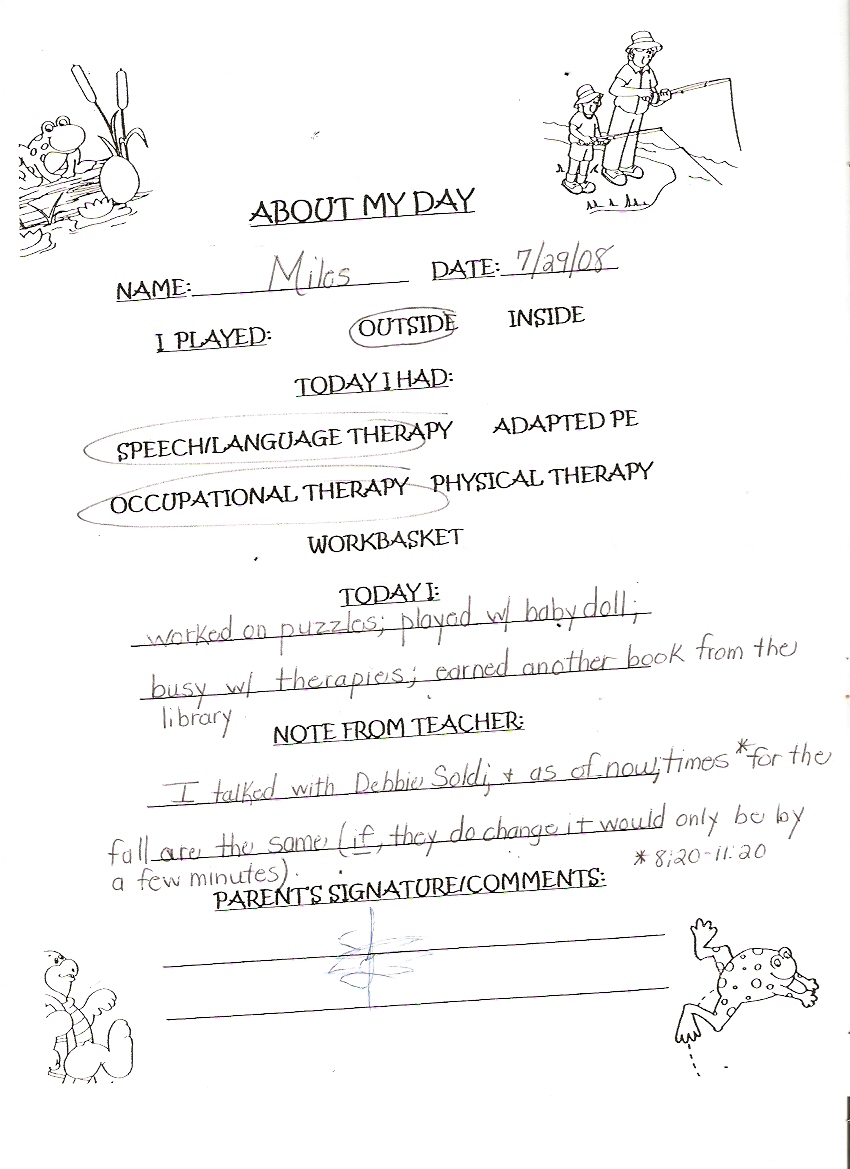 ABOUT MY DAY
NAME: Miles DATE: 7/29/08
I PLAYED: OUTSIDE INSIDE
TODAY I HAD:
SPEECH/LANGUAGE THERAPY ADAPTED PE
OCCUPATIONAL THERAPY PHYSICAL THERAPY
WORKBASKET
TODAY I:
worked on puzzles; played w/ baby doll;
busy w/ therapies; earned another book from the
library
NOTE FROM TEACHER:
I talked with Debbie Soldi, + as of now, times * for the
fall are the same (if, they do change it would only be by
a few minutes). * 8:20-11:20
PARENT'S SIGNATURE/COMMENTS: